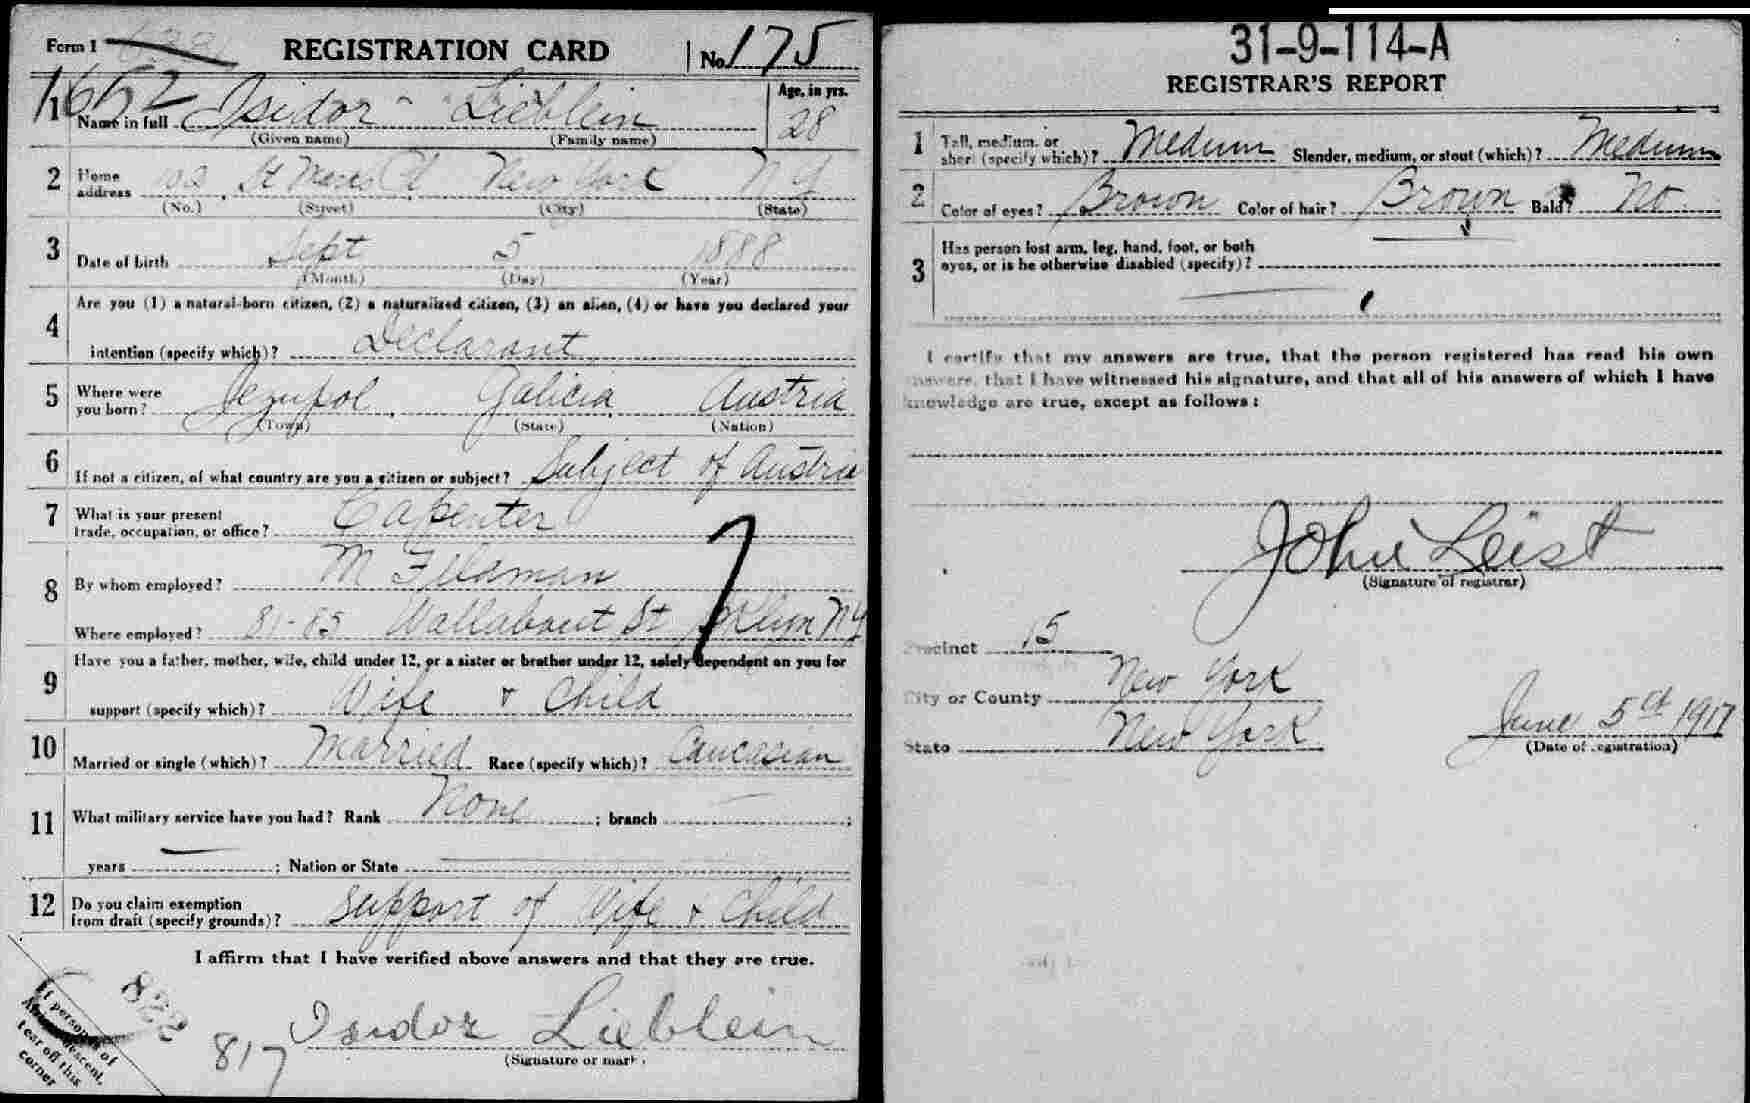 Form 1
REGISTRATION CARD
No. 175
1662
1 Name in full Isidor Lieblein
(Given name) (Family name)
Age, in yrs.
28
2 Home address St Marks Pl New York N Y
(No.) (Street) (City) (State)
3 Date of birth Sept 5 1888
(Month) (Day) (Year)
4 Are you (1) a natural-born citizen, (2) a naturalized citizen, (3) an alien, (4) or have you declared your
intention (specify which)? Declarant
5 Where were you born? Jezupol Galicia Austria
(Town) (State) (Nation)
6 If not a citizen, of what country are you a citizen or subject? Subject of Austria
7 What is your present trade, occupation, or office? Capenter
8 By whom employed? M Feldman
Where employed? 81-85 Wallabout St Bklyn NY
9 Have you a father, mother, wife, child under 12, or a sister or brother under 12, solely dependent on you for
support (specify which)? Wife & Child
10 Married or single (which)? Married Race (specify which)? Caucasian
11 What military service have you had? Rank None ; branch ;
years ; Nation or State
12 Do you claim exemption from draft (specify grounds)? Support of Wife & Child
I affirm that I have verified above answers and that they are true.
Isidor Lieblein
(Signature or mark)
If person is of
African descent,
tear off this
corner
822
817
31-9-114-A
REGISTRAR'S REPORT
1 Tall, medium, or short (specify which)? Medium Slender, medium, or stout (which)? Medium
2 Color of eyes? Brown Color of hair? Brown Bald? No
3 Has person lost arm, leg, hand, foot, or both
eyes, or is he otherwise disabled (specify)?
I certify that my answers are true, that the person registered has read his own
answers, that I have witnessed his signature, and that all of his answers of which I have
knowledge are true, except as follows:
John Leist
(Signature of registrar)
Precinct 15
City or County New York
State New York
June 5th 1917
(Date of registration)